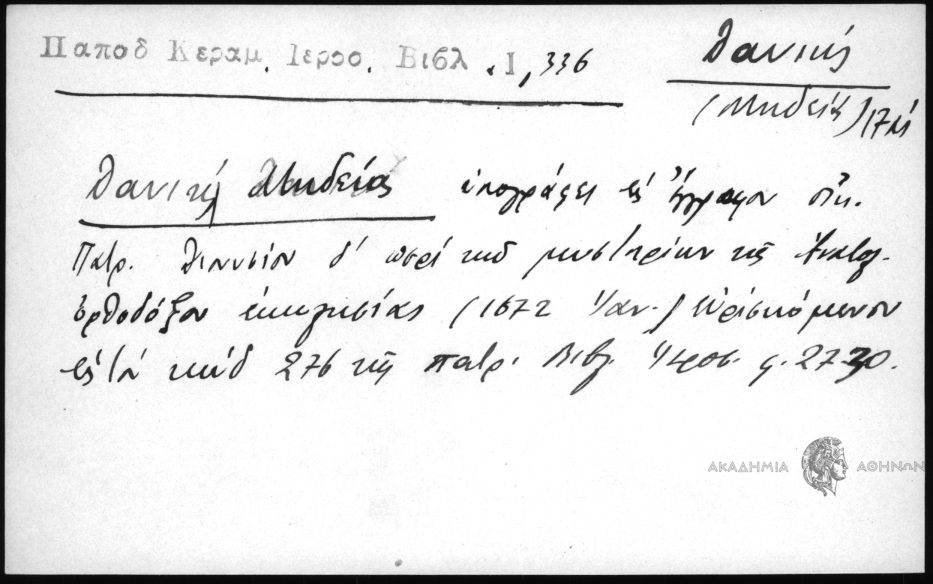 Παποδ Κεραμ. Ιεροσ. Βιβλ. Ι, 336
Δανιήλ
(Μηδείας) 17 αι
Δανιήλ Μηδείας υπογράφει εις έγγραφον οικ.
Πατρ. Διονυσίου δ' περί των μυστηρίων της Ανατολ.
Ορθοδόξου εκκλησίας (1672 Ιαν.) ευρισκόμενον
εις τον κώδ 276 της πατρ. Βιβλ. Ιεροσ. φ. 27-30.
ΑΚΑΔΗΜΙΑ ΑΘΗΝΩΝ